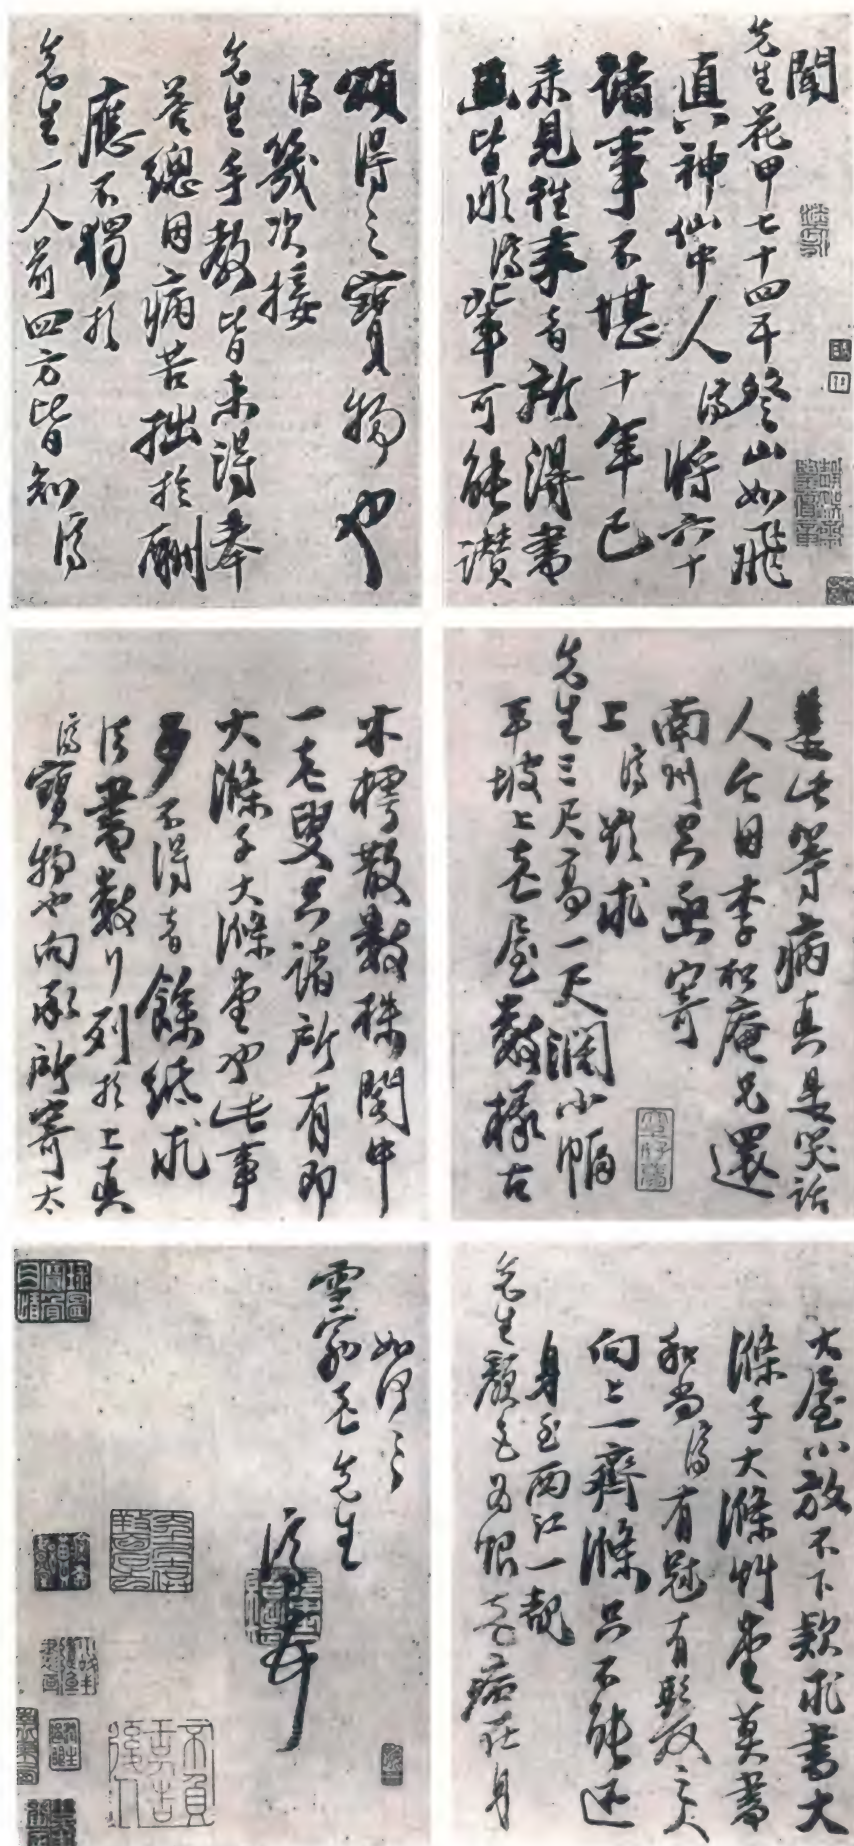 聞
先生花甲七十四五登山如飛
真神仙中人濟將六十
諸事不堪十年已
來見往來者新得書
畫皆非濟輩可能讚
頌得之寶物也
濟幾次接
先生手教皆未得奉
答總因病苦拙於酬
應不獨於
先生一人前四方皆知濟
是此等病真是笑話
人今因李松庵兄還
南州空函寄
上濟欲求
先生三尺高一尺闊小幅
平坡上老屋數椽古
木樗散數株閣中
一老叟空諸所有即
大滌子大滌堂也此事
少不得者餘紙求
法書數行列於上真
濟寶物也向承所寄太
大屋小放不下款求書大
滌子大滌艸堂莫書
和尚濟有冠有髮之人
向上一齊滌只不能還
身至西江一覩
先生顏色為恨老病在身
如何之
雪翁老先生
濟頓首